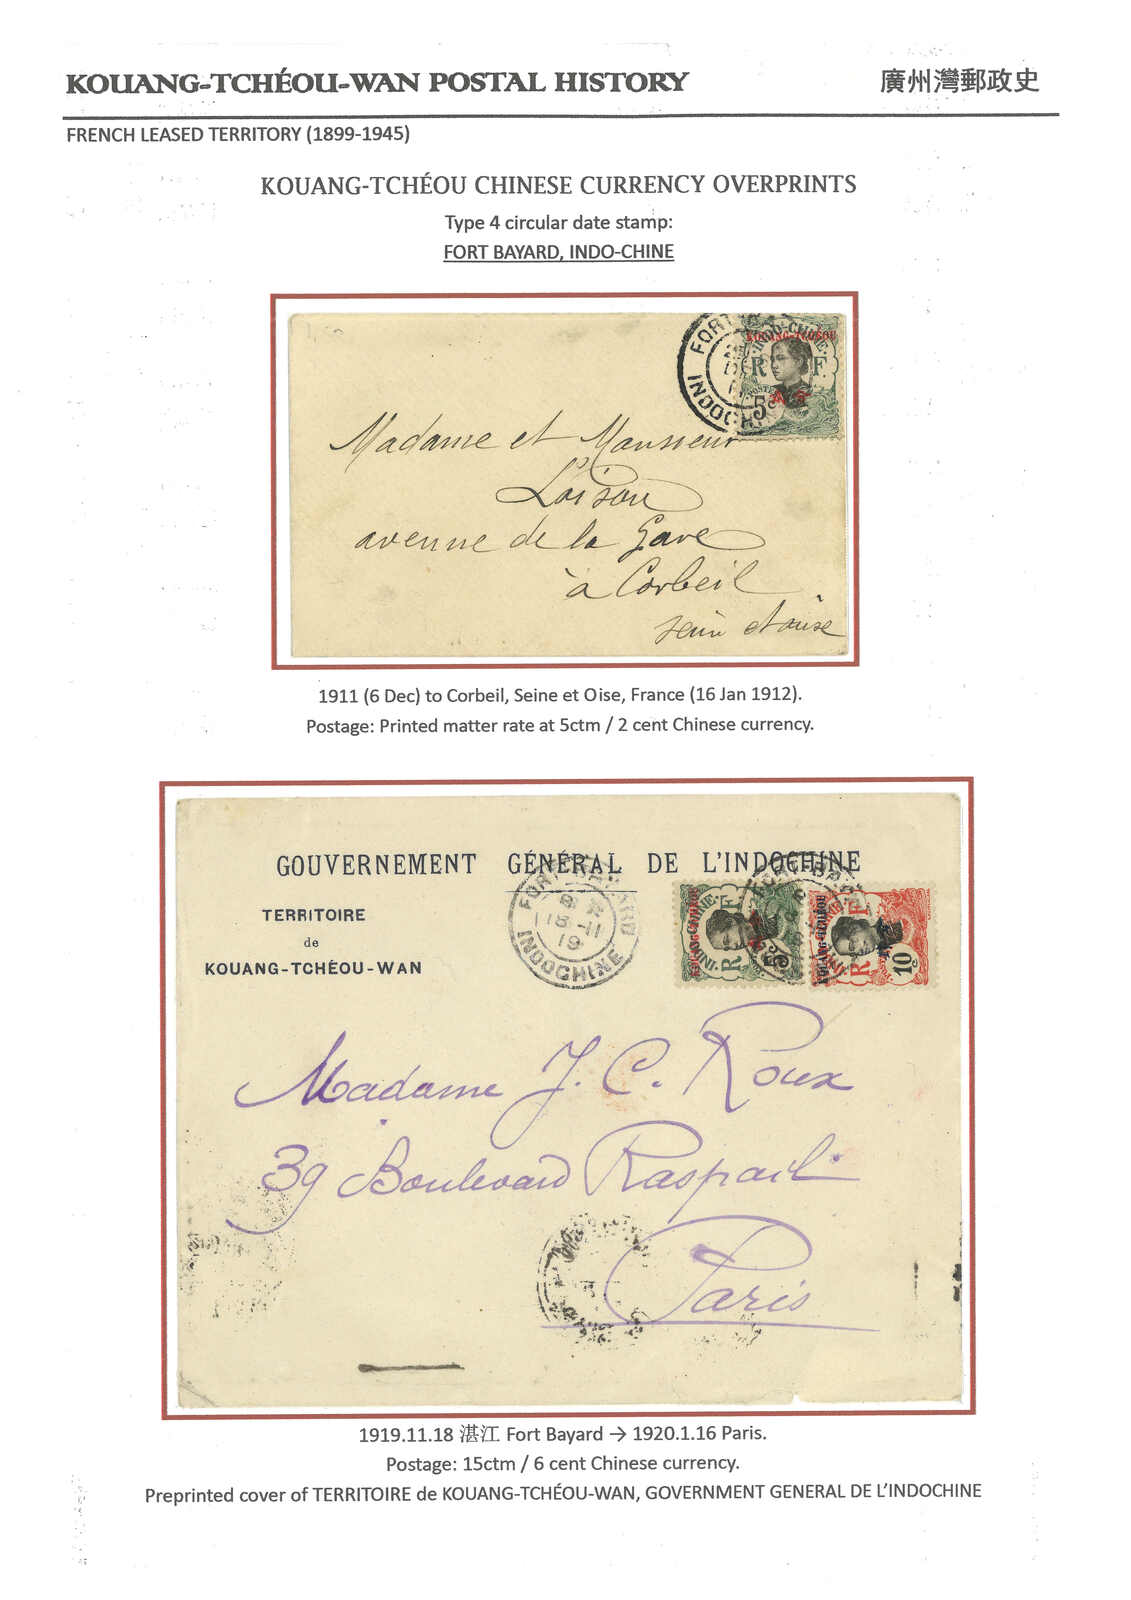 KOUANG-TCHÉOU-WAN POSTAL HISTORY 廣州灣郵政史
FRENCH LEASED TERRITORY (1899-1945)
KOUANG-TCHÉOU CHINESE CURRENCY OVERPRINTS
Type 4 circular date stamp:
FORT BAYARD, INDO-CHINE
FORT
INDOCH
INDO-CHINE
KOUANG-TCHÉOU
R F
POSTES
5c
Madame et Monsieur
Loison
avenue de la Gare
à Corbeil
Seine et Oise
1911 (6 Dec) to Corbeil, Seine et Oise, France (16 Jan 1912).
Postage: Printed matter rate at 5ctm / 2 cent Chinese currency.
GOUVERNEMENT GÉNÉRAL DE L'INDOCHINE
TERRITOIRE
de
KOUANG-TCHÉOU-WAN
FORT-BAYARD
18-11
19
INDOCHINE
KOUANG-TCHÉOU
INDO-CHINE
R F
5c
FORT-BA
KOUANG-TCHÉOU
R F
10c
Madame J. C. Roux
39 Boulevard Raspail
Paris
1919.11.18 湛江 Fort Bayard → 1920.1.16 Paris.
Postage: 15ctm / 6 cent Chinese currency.
Preprinted cover of TERRITOIRE de KOUANG-TCHÉOU-WAN, GOVERNMENT GENERAL DE L'INDOCHINE